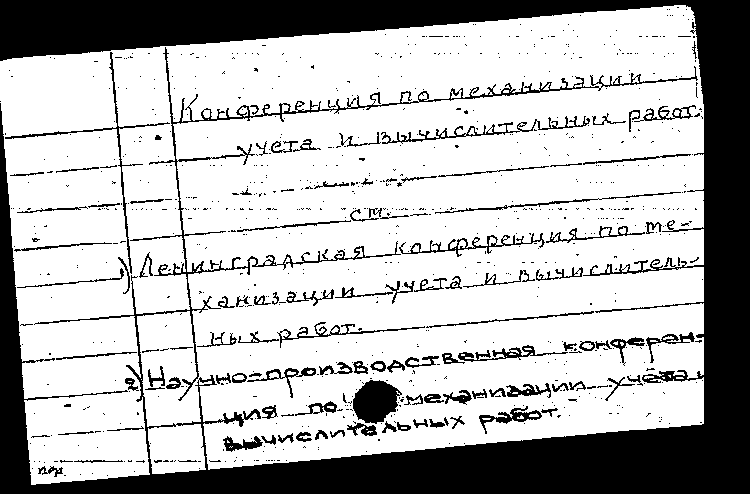 Конференция по механизации
учета и вычислительных работ.
см.
1) Ленинградская конференция по ме-
ханизации учета и вычислитель-
ных работ.
2) Научно-производственная конферен-
ция по механизации учета и
вычислительных работ.